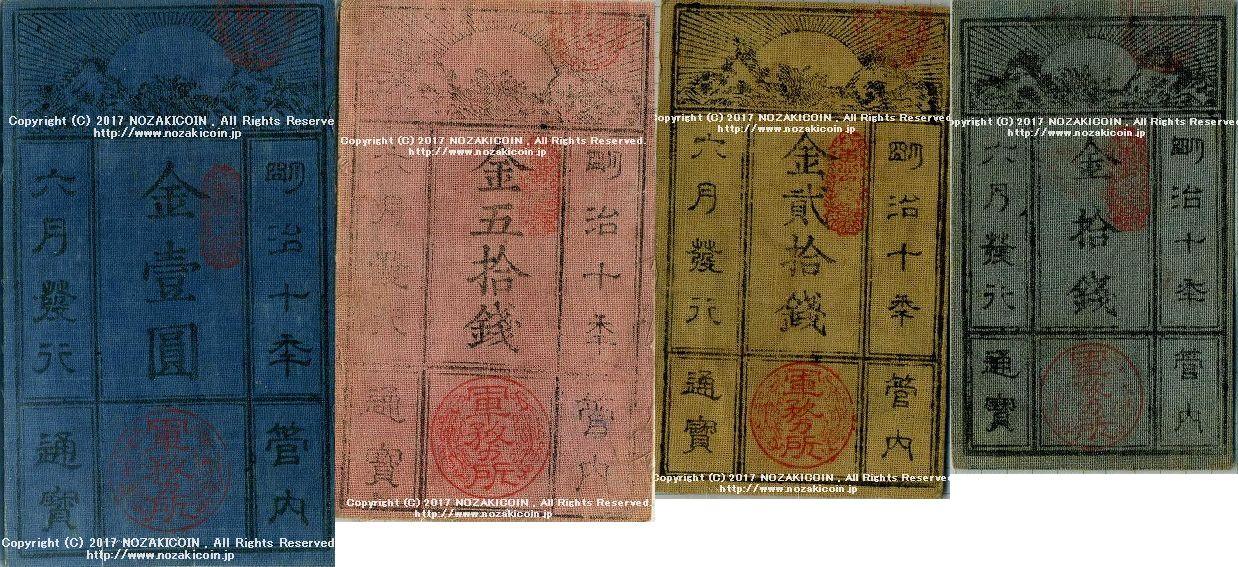 Copyright (C) 2017 NOZAKICOIN , All Rights Reserved
http://www.nozakicoin.jp
明治十年
管内
金壹圓
軍務所
六月發行
通寶
Copyright (C) 2017 NOZAKICOIN , All Rights Reserved.
http://www.nozakicoin.jp
Copyright (C) 2017 NOZAKICOIN , All Rights Reserved.
http://www.nozakicoin.jp
明治十年
管内
金五拾錢
軍務所
六月發行
通寶
Copyright (C) 2017 NOZAKICOIN , All Rights Reserved.
http://www.nozakicoin.jp
Copyright (C) 2017 NOZAKICOIN , All Rights Reserved.
http://www.nozakicoin.jp
明治十年
管内
金貳拾錢
軍務所
六月發行
通寶
Copyright (C) 2017 NOZAKICOIN , All Rights Reserved.
http://www.nozakicoin.jp
Copyright (C) 2017 NOZAKICOIN , All Rights Reserved.
http://www.nozakicoin.jp
明治十年
管内
金拾錢
軍務所
六月發行
通寶